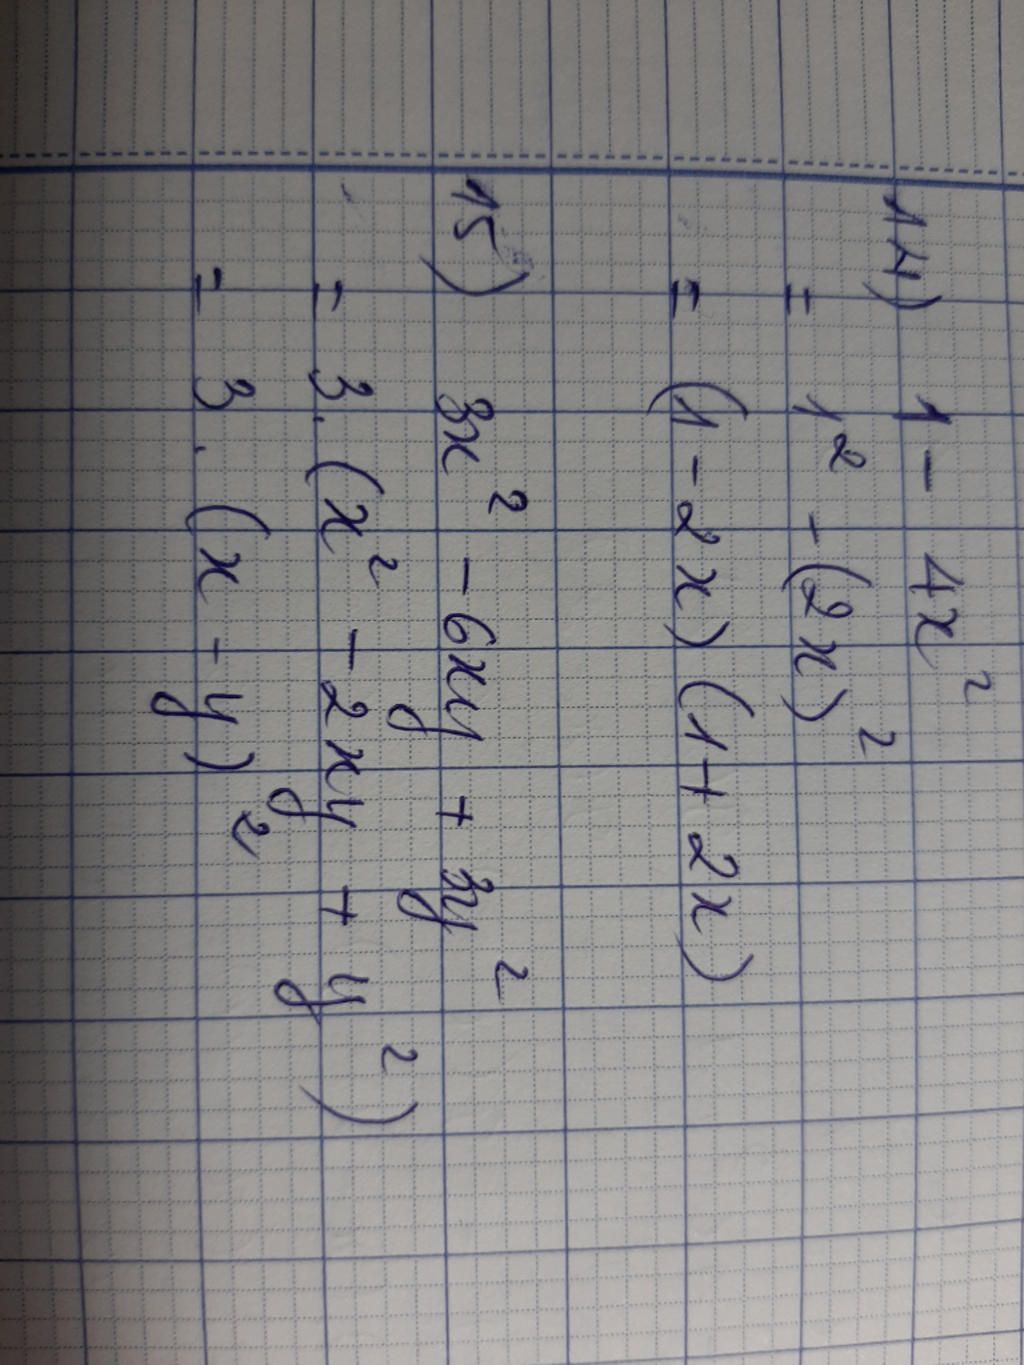 14) 1 - 4x²
= 1² - (2x)²
= (1 - 2x) (1 + 2x)
15) 3x² - 6xy + 3y²
= 3. (x² - 2xy + y²)
= 3. (x - y)²